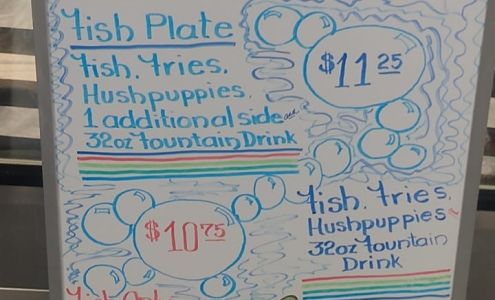 Fish Plate
Fish, Fries,
Hushpuppies,
1 additional side and
32oz Fountain Drink
$11 25
$10 75
Fish, Fries,
Hushpuppies
32oz Fountain
Drink